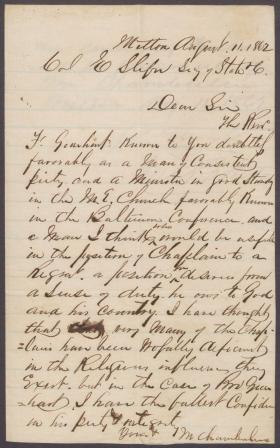 Milton August 11. 1862
Col E Slifer Secy of State &c.
Dear Sir
The Revd
F. Gearhart known to You doubtless
favorably as a Man of Consistent
piety and a Minister in good Standing
in the M.E. Church favorably Known
in the Baltimore Conference, and
a Man I think who would be useful
in the position of Chaplain to a
Regmt. a position he desires from
a sense of duty he owes to God
and his Country. I have thought
that very Many of the Chap
=lains have been wofully deficient
in the Religious influence they
Exert. but in the Case of Bro Gear
hart I have the fullest Confidence
in his piety & integrity
Yours &c
M Chamberlin